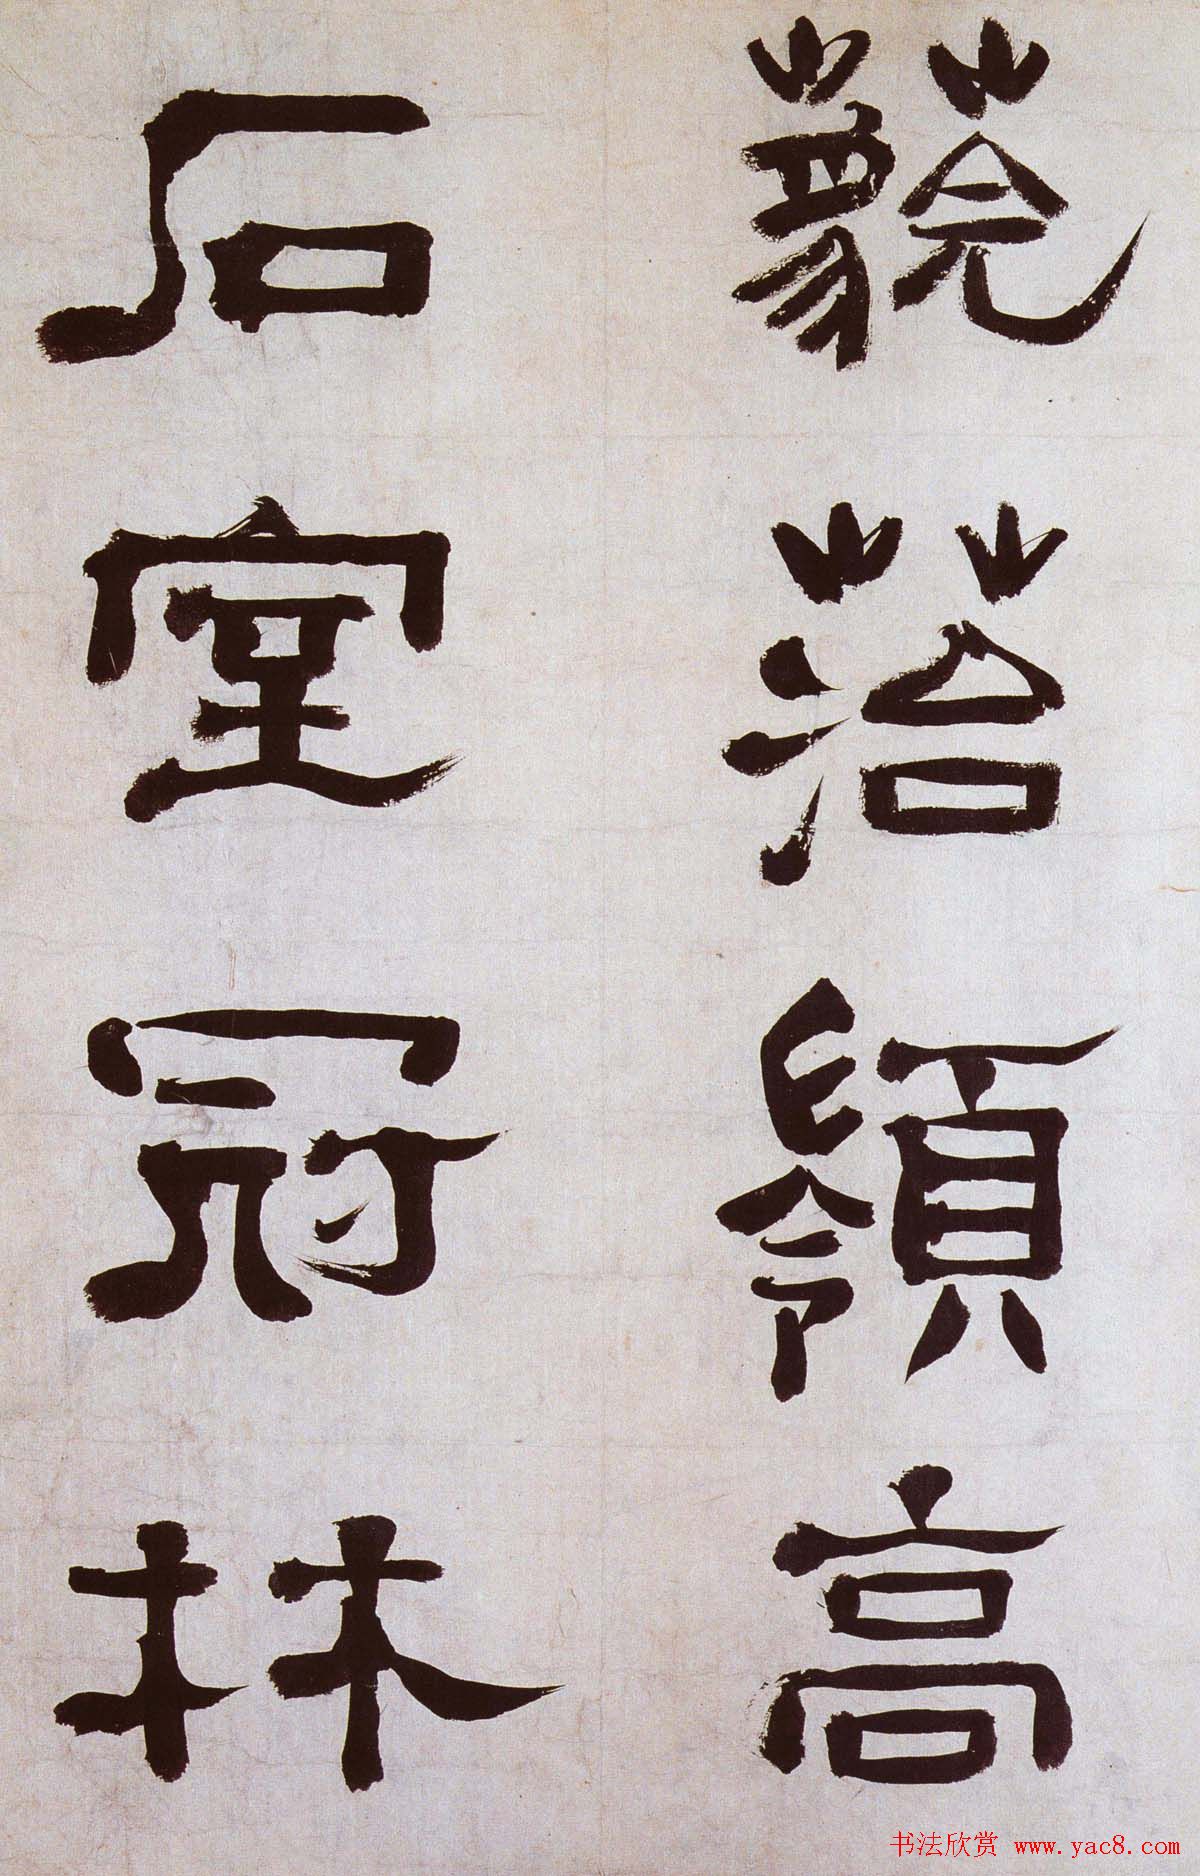 藐落嶺高
石室冠林
书法欣赏 www.yac8.com